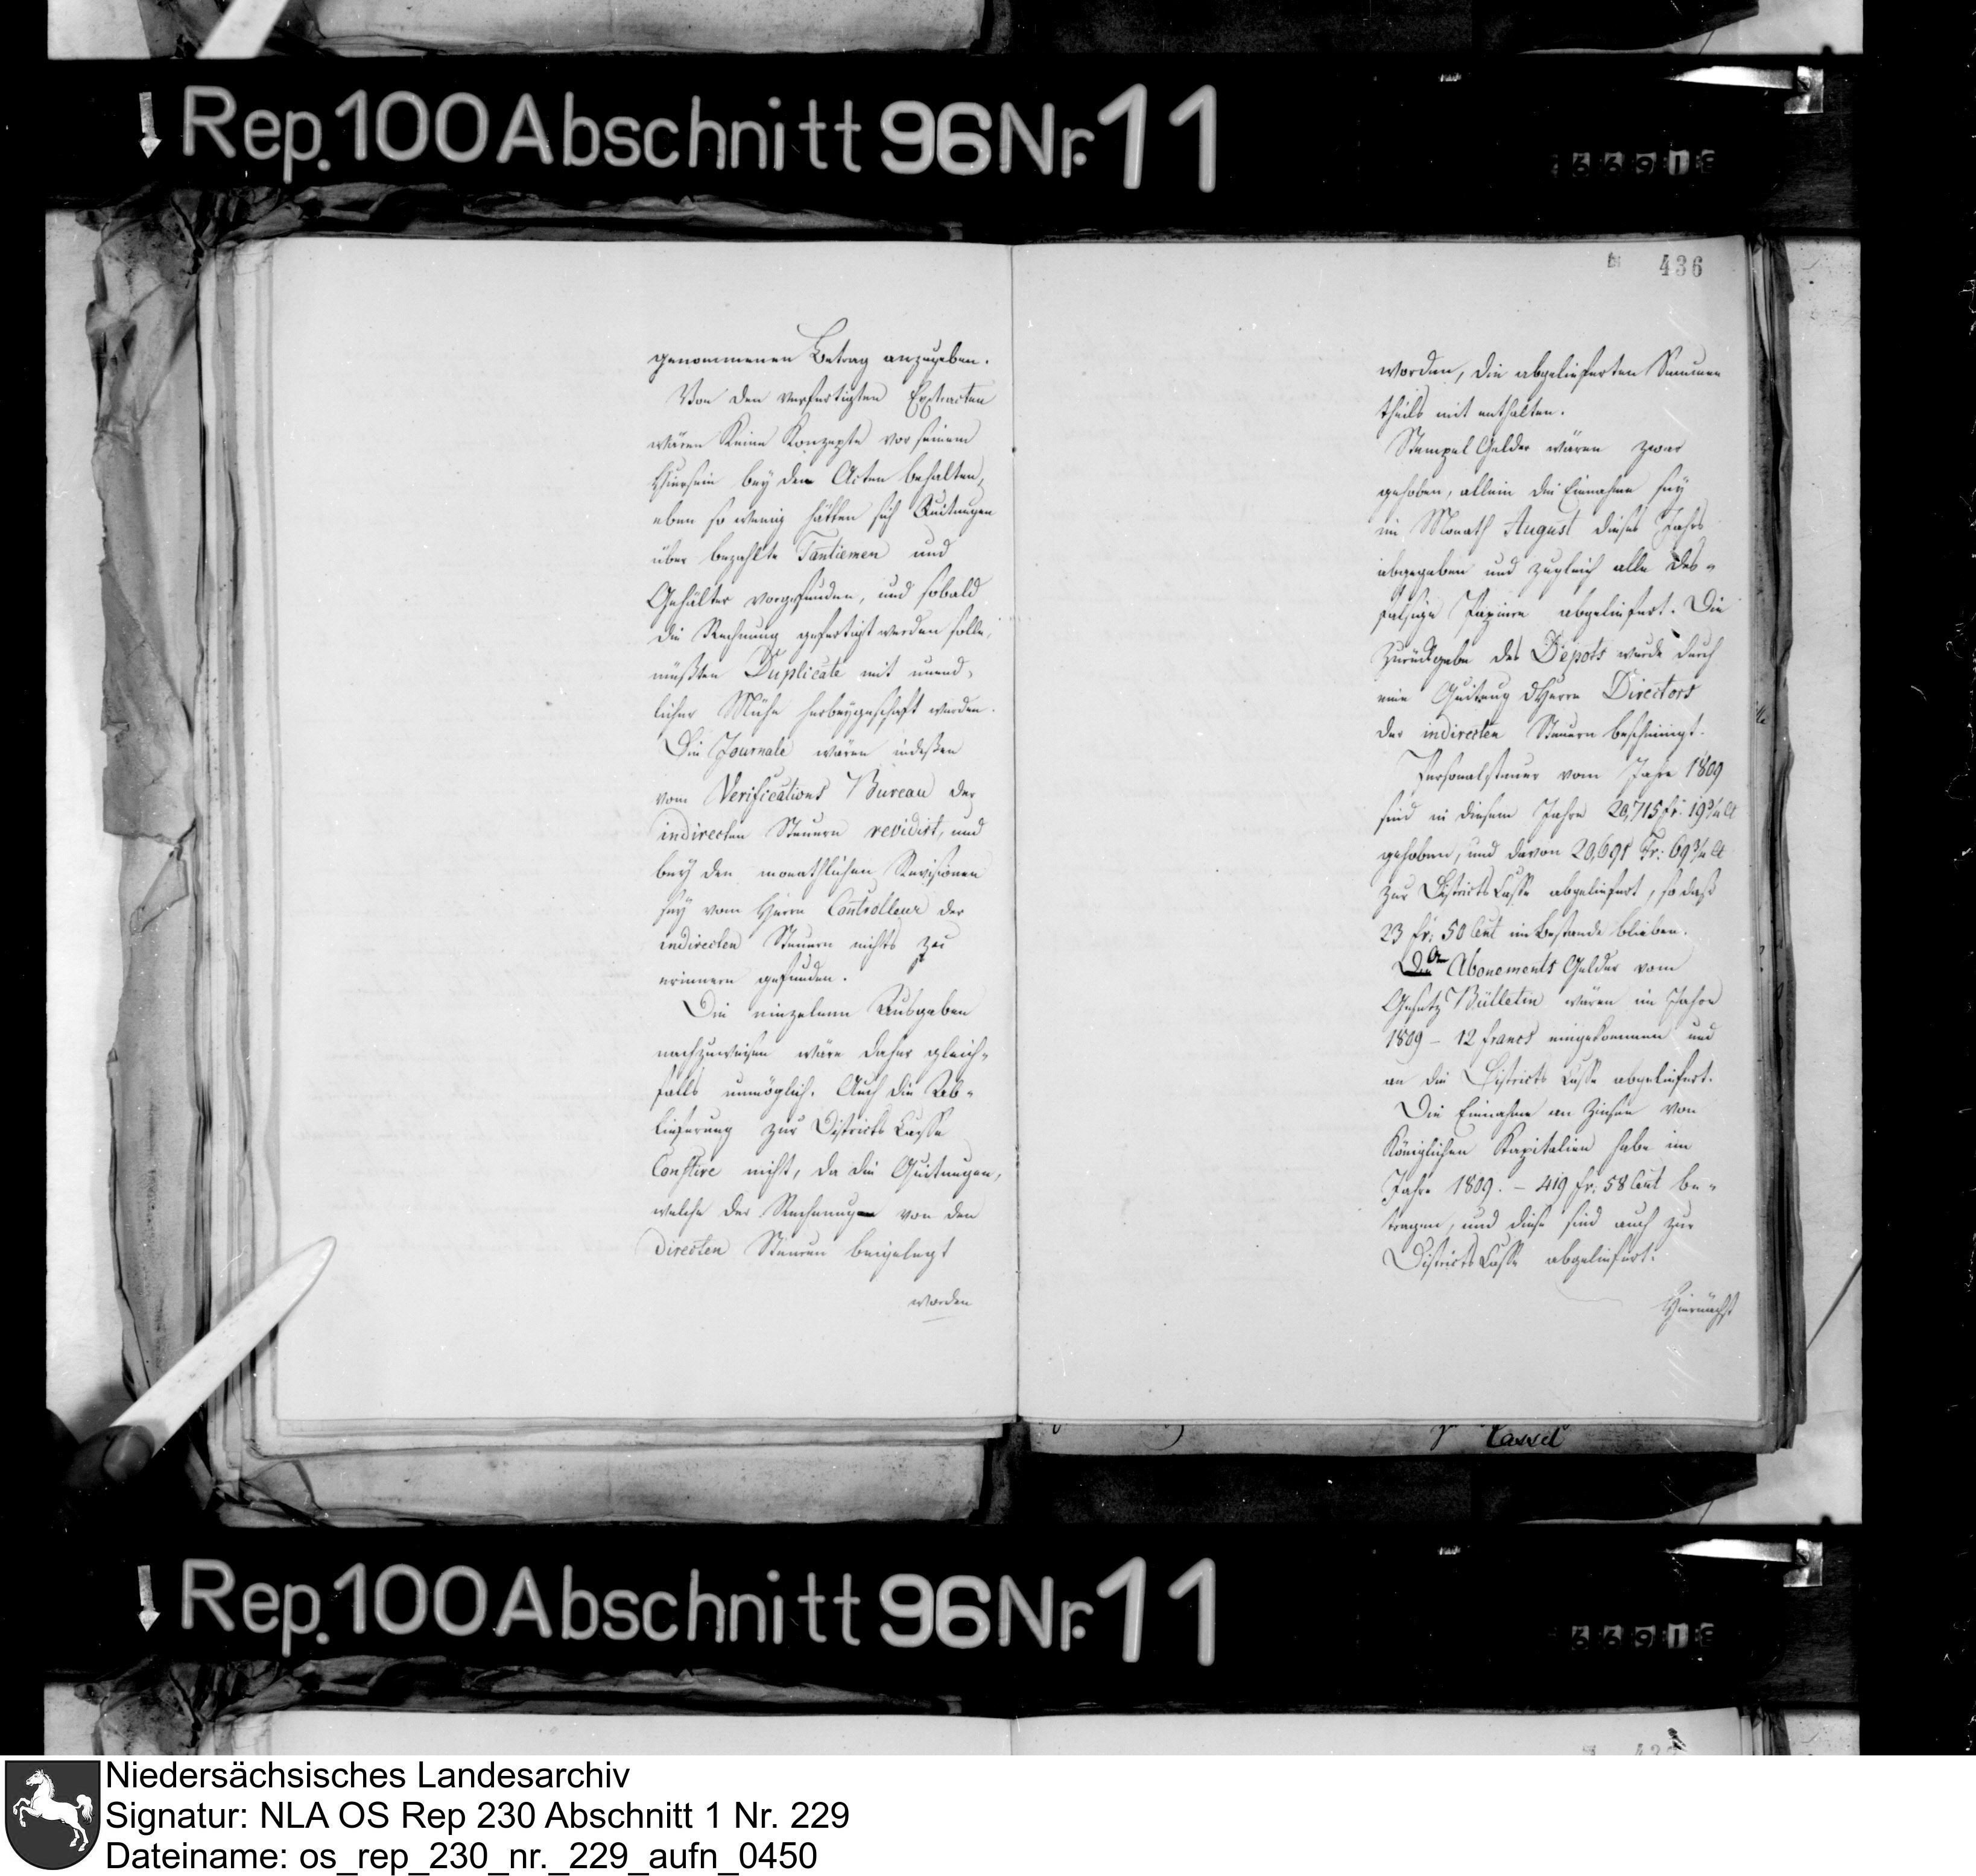 Rep. 100 Abschnitt 96 Nr. 11
436
genommenen Betrag anzugeben.
Von den verfertigten Extracten
wären keine Konzepte vor seinem
Hiersein bey den Acten behalten,
eben so wenig hätten sich Quitungen
über bezahlte Tantiemen und
Gehälter vorgefunden, und sobald
die Rechnung gefertigt werden solle,
müßten Duplicate mit unend-
licher Mühe herbeygeschaft werden.
Die Journale wären indeßen
vom Verifications Bureau der
indirecten Steuern revidirt, und
bey den monathlichen Revisionen
sey vom Herrn Controlleur der
indirecten Steuern nichts zu
erinnern gefunden.
Die einzelnen Ausgaben
nachzuweisen wäre daher gleich-
falls unmöglich. Auch die Ab-
lieferung zur Districts Casse
Constire nicht, da die Quitungen,
welche der Rechnung von den
directen Steuern beigelegt
worden
worden, die abgelieferten Summen
theils mit enthalten.
Stempel Gelder wären zwar
gehoben, allein die Einnahme sey
im Monath August dieses Jahrs
abgegeben und zugleich alle des-
falsige Papiere abgeliefert. Die
Zurückgabe des Depots wurde durch
eine Quitung d Herrn Directors
der indirecten Steuern bescheinigt.
Personalsteuer vom Jahre 1809
sind in diesem Jahre 20,715 fr. 19¾ Ct
gehoben, und davon 20,691 Fr: 69¾ Ct
zur Districts Casse abgeliefert, so daß
23 fr: 50 Cent im Bestande blieben.
An Abonements Gelder vom
Gesetz Bülletin wären im Jahre
1809 – 12 francs eingekommen und
an die Districts Casse abgeliefert.
Die Einnahme an Zinsen von
Königlichen Kapitalien habe im
Jahre 1809. – 419 fr: 58 Cent be-
tragen, und diese sind auch zur
Districts Casse abgeliefert.
Hiernächst
Cassel
Rep. 100 Abschnitt 96 Nr. 11
Niedersächsisches Landesarchiv
Signatur: NLA OS Rep 230 Abschnitt 1 Nr. 229
Dateiname: os_rep_230_nr._229_aufn_0450